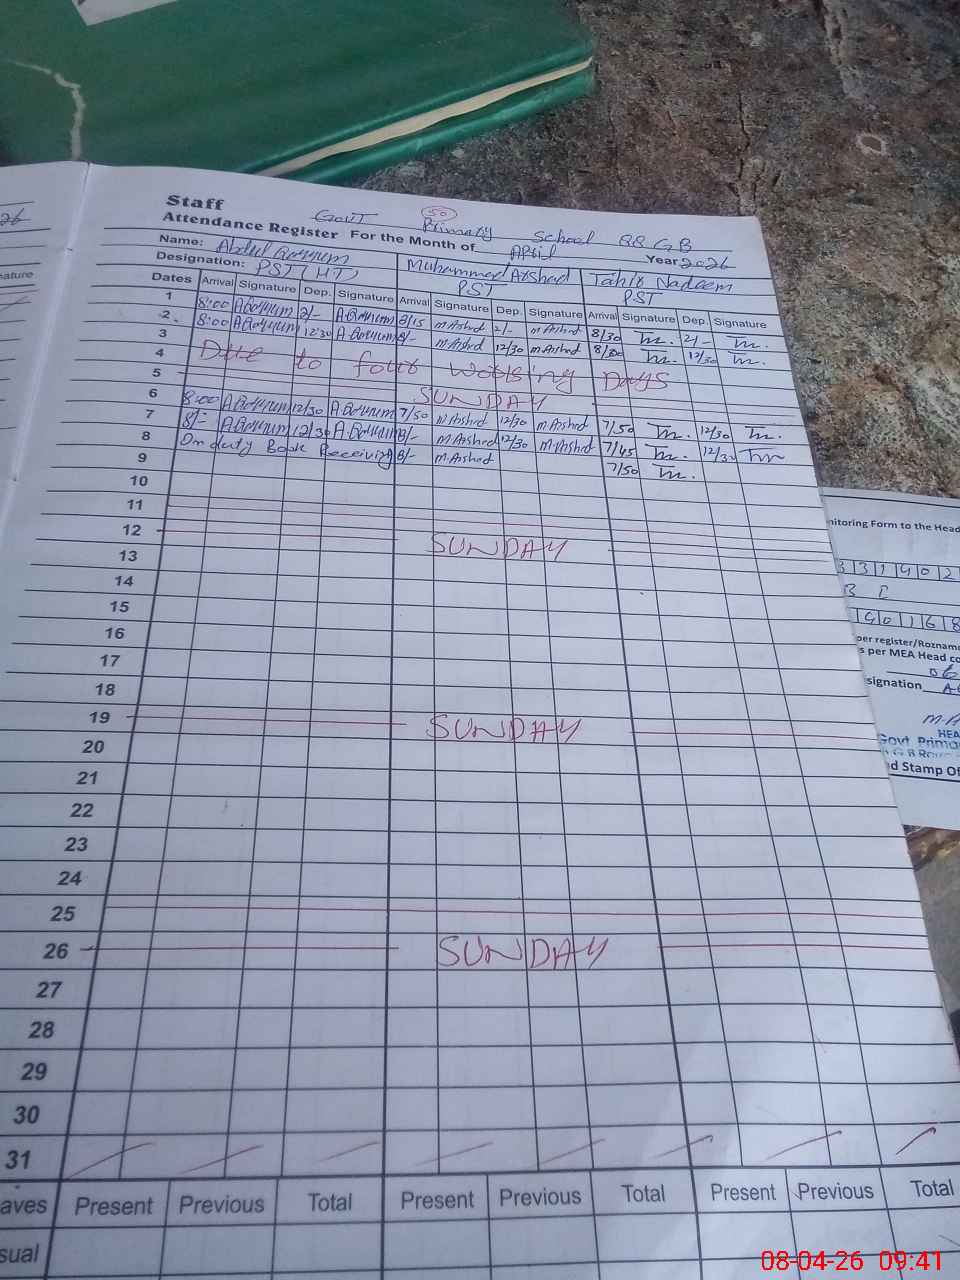 Staff
Govt 50 Primary School RR GB
Attendance Register For the Month of April Year 2026
Name: Abdul Qayyum Muhammad Arshad Tahir Nadeem
Designation: PST (HT) PST PST
Dates Arrival Signature Dep. Signature Arrival Signature Dep. Signature Arrival Signature Dep. Signature
1 8:00 A.Qayyum 2/- A.Qayyum 8/15 M Arshed 2/- M Arshed 8/30 Tn. 2/- Tn.
2 8:00 A.Qayyum 12:30 A.Qayyum 8/- M Arshed 12/30 M Arshed 8/00 Tn. 12/30 Tn.
3
4 Due to four working Days
5 SUNDAY
6 8:00 A.Qayyum 12/30 A.Qayyum 7/50 M Arshed 12/30 M Arshed 7/50 Tn. 12/30 Tn.
7 8/- A.Qayyum 12/30 A.Qayyum 8/- M Arshed 12/30 M Arshed 7/45 Tn. 12/30 Tn
8 On duty Book Receiving 8/- M Arshed 7/50 Tn.
9
10
11
12 SUNDAY
13
14
15
16
17
18
19 SUNDAY
20
21
22
23
24
25
26 SUNDAY
27
28
29
30
31
aves Present Previous Total Present Previous Total Present Previous Total
sual
26
nature
nitoring Form to the Head
3 3 1 4 0 2
4 0 1 6 8
per register/Roznam
s per MEA Head co
06
signation
M.A
HEA
Govt Prima
nd Stamp Of
08-04-26 09:41